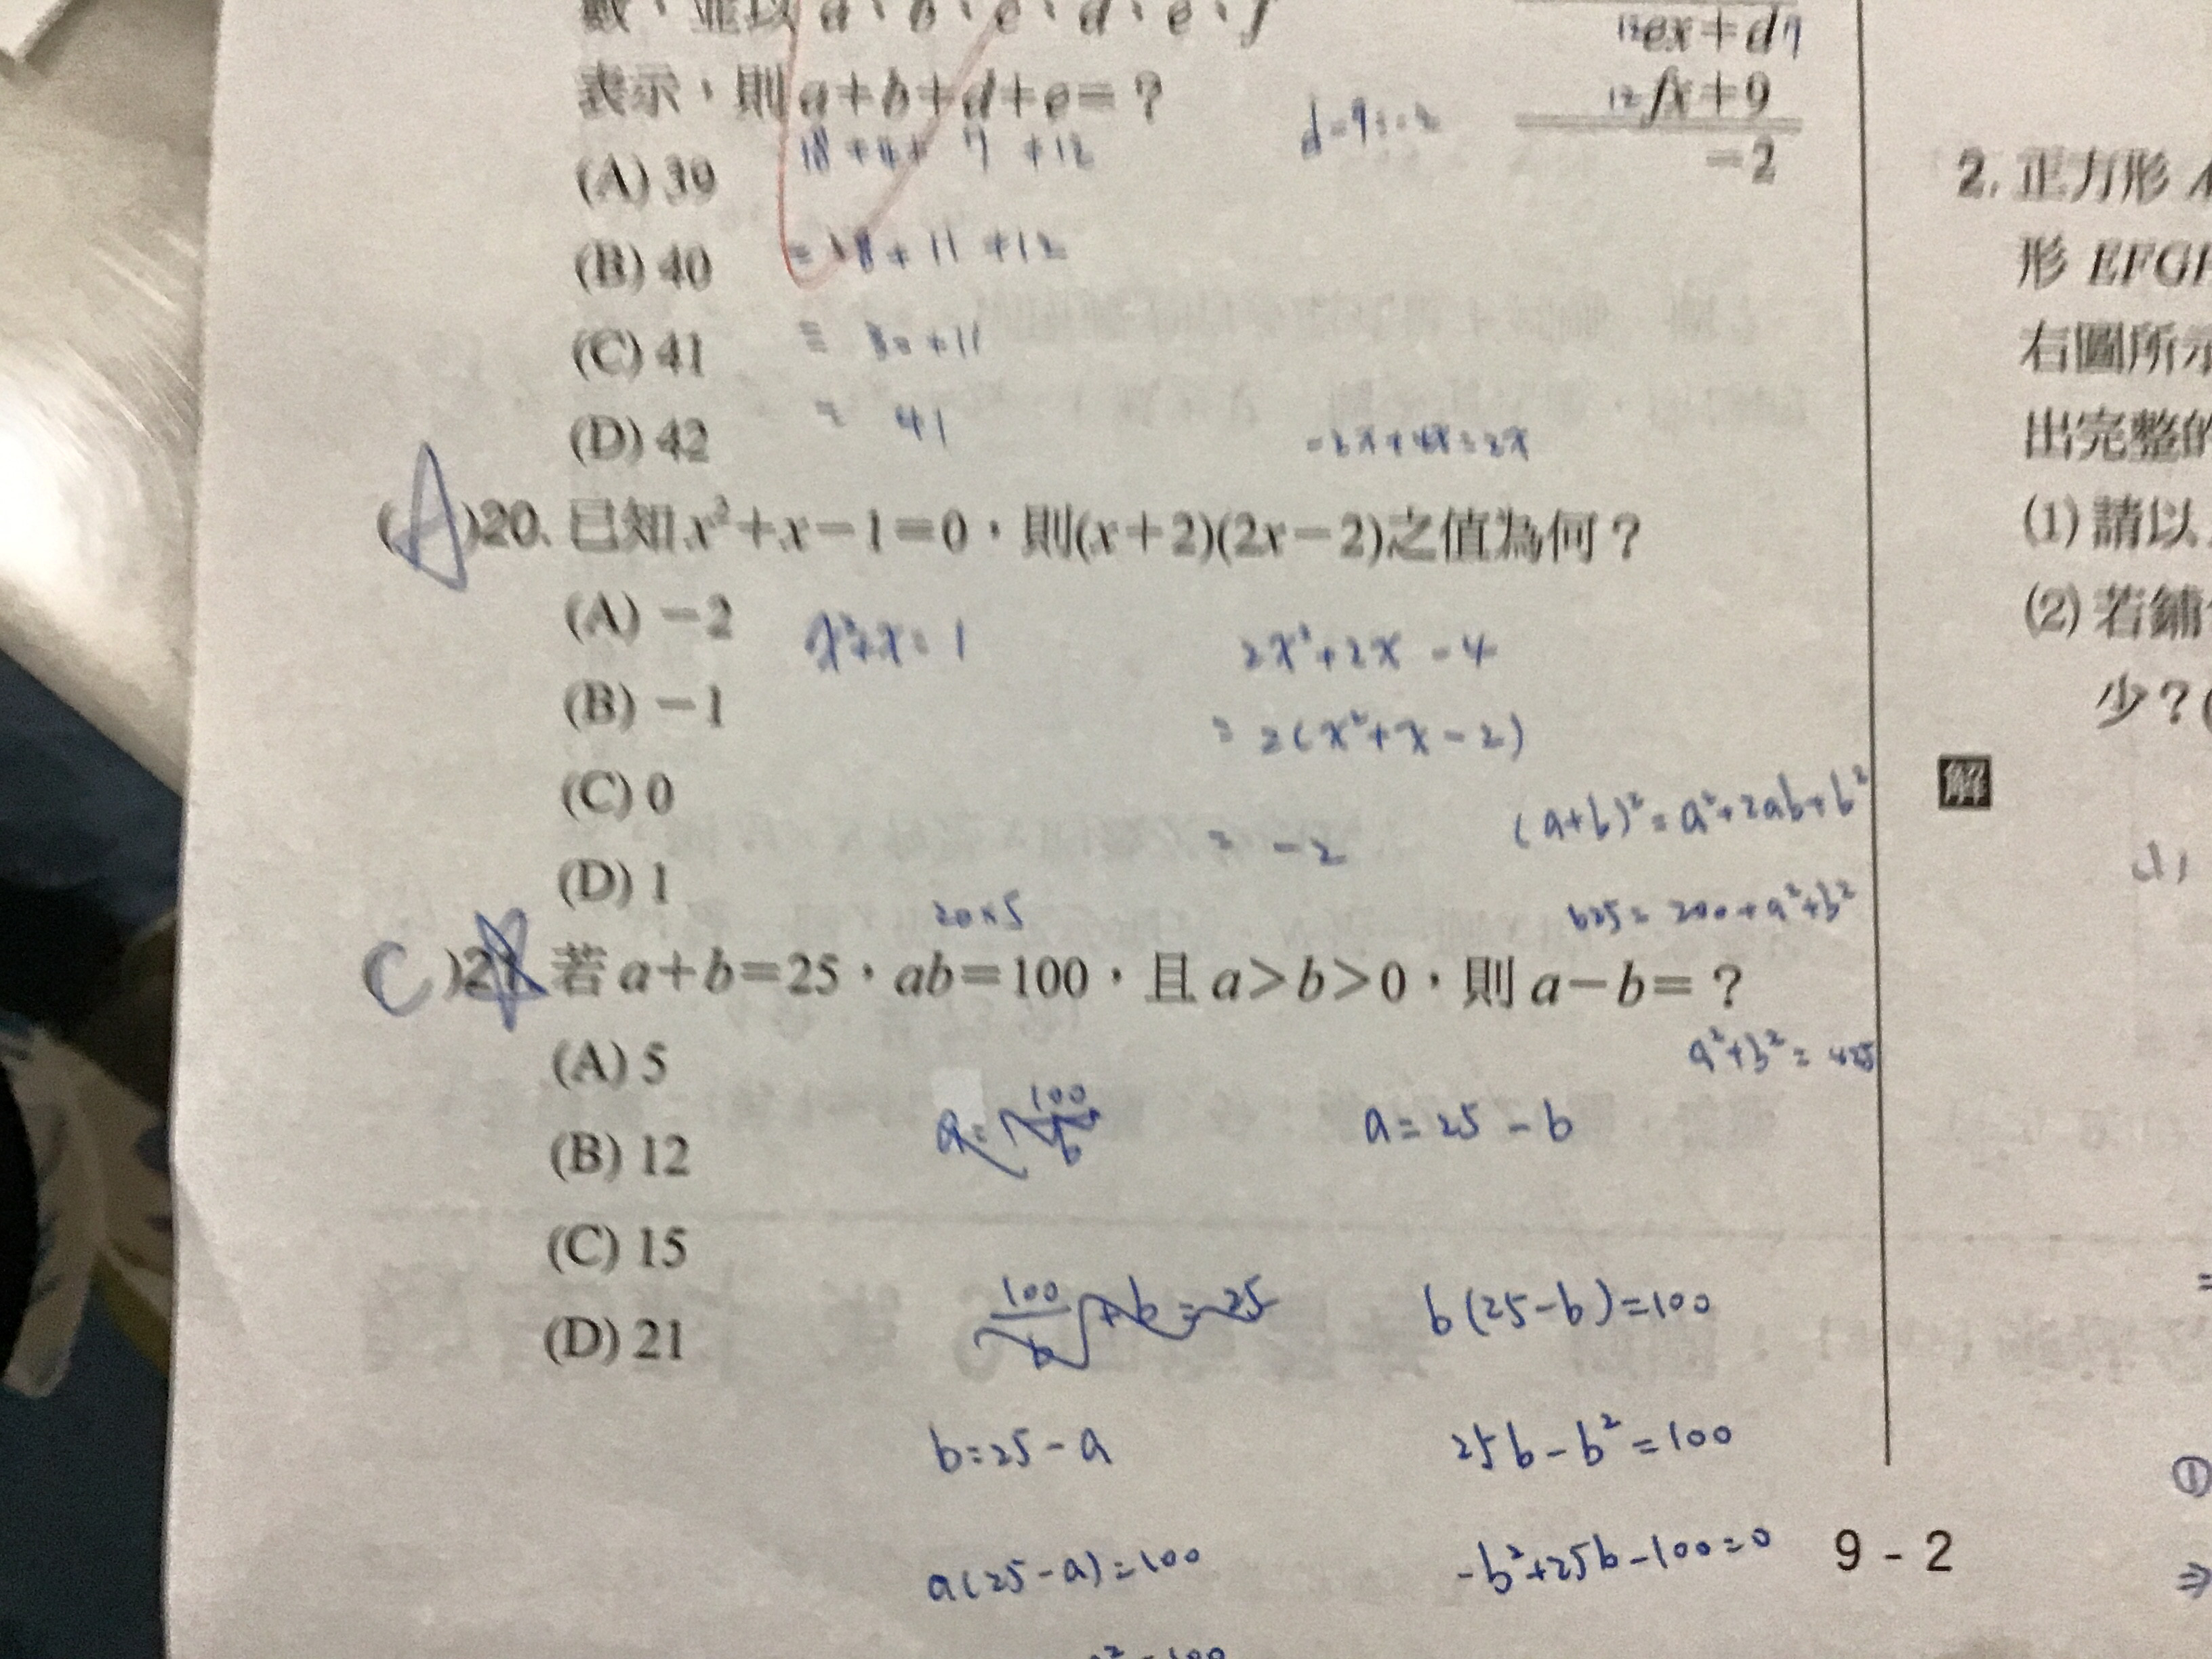 數,並以 a、b、c、d、e、f
表示,則 a+b+d+e=?
18+4+ 7 +12
(A) 39
=18+11+12
(B) 40
= 30+11
(C) 41
= 41
(D) 42
ex+d 7
12 fx+9
-2
-2x+4x=2x
(A)20. 已知 x²+x-1=0,則(x+2)(2x-2)之值為何?
(A) -2
x²+x=1
2x²+2x-4
(B) -1
=2(x²+x-2)
(C) 0
= -2
(D) 1
(a+b)²=a²+2ab+b²
20×5
625=200+a²+b²
(C)21. 若 a+b=25,ab=100,且 a>b>0,則 a-b=?
(A) 5
a²+b²=425
a=100/b
a=25-b
(B) 12
(C) 15
100/b+b=25
b(25-b)=100
(D) 21
b=25-a
25b-b²=100
a(25-a)=100
-b²+25b-100=0
9-2
2. 正方形
形 EFG
右圖所示
出完整的
(1) 請以
(2) 若鋪
少?(
解
①
⇒